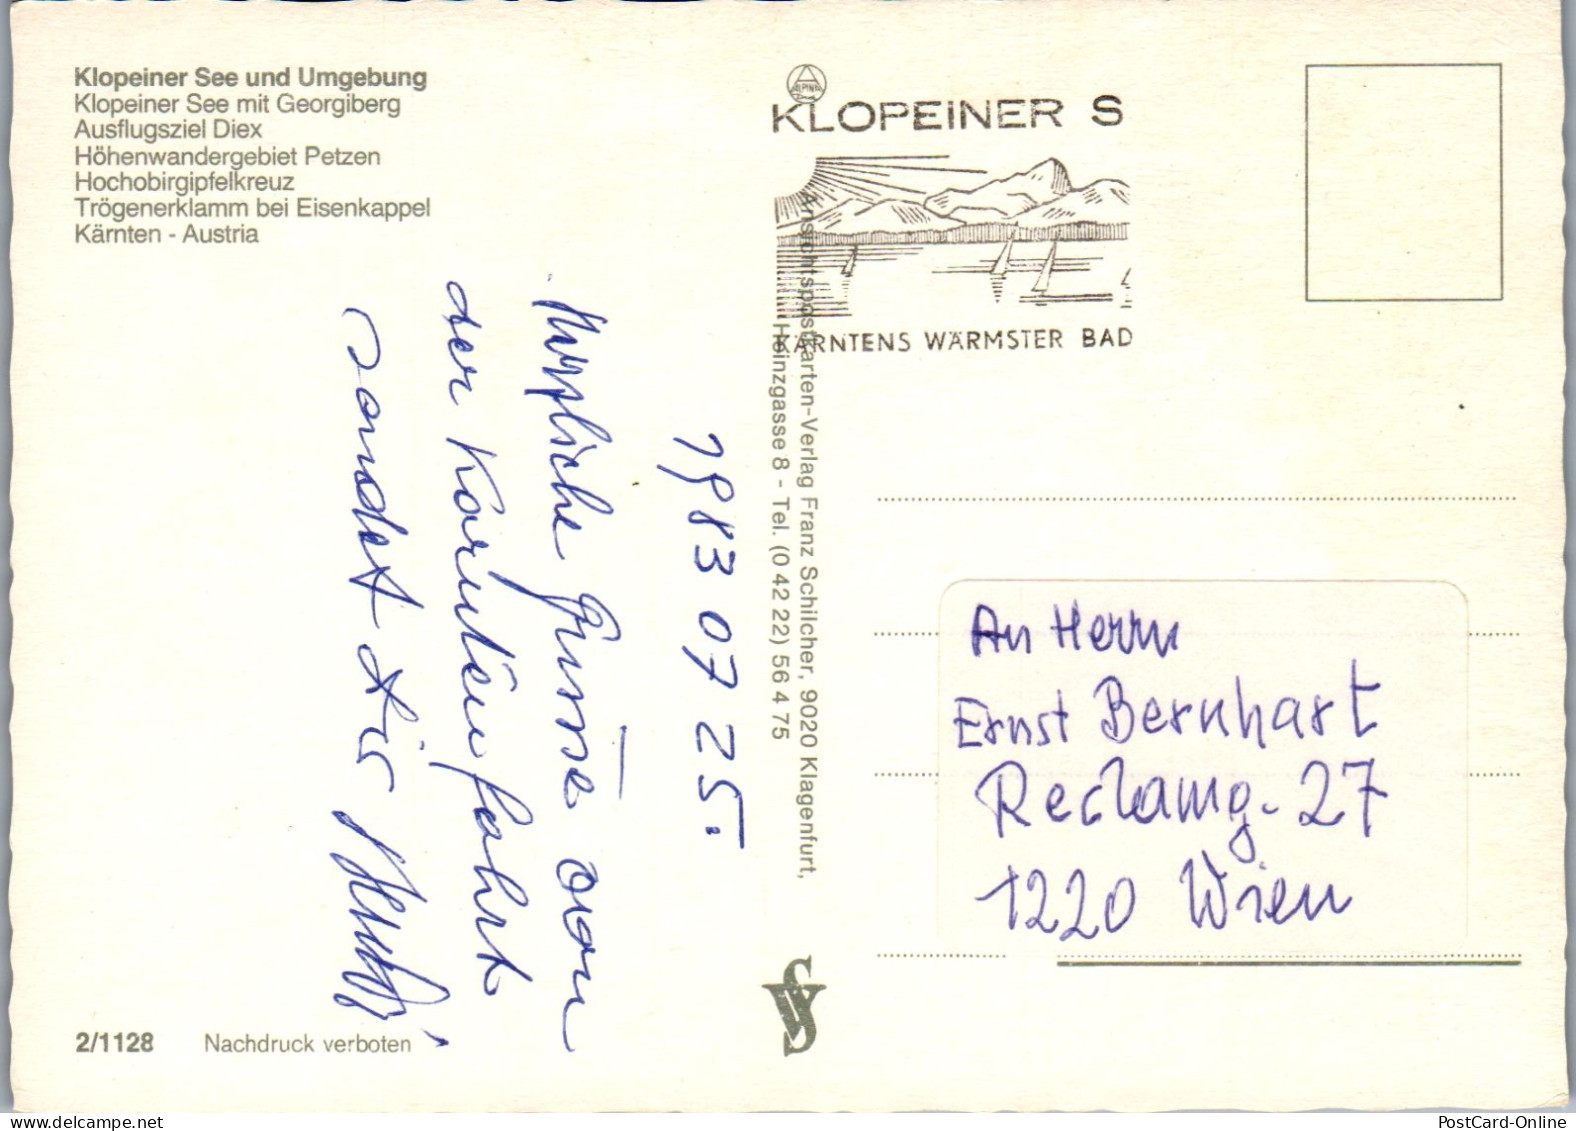 Klopeiner See und Umgebung
Klopeiner See mit Georgiberg
Ausflugsziel Diex
Höhenwandergebiet Petzen
Hochobirgipfelkreuz
Trögenerklamm bei Eisenkappel
Kärnten - Austria
ALPINA
KLOPEINER S
KÄRNTENS WÄRMSTER BAD
Ansichtspostkarten-Verlag Franz Schilcher, 9020 Klagenfurt,
Heinzgasse 8 - Tel. (0 42 22) 56 4 75
1983 07 25.
Herzliche Grüsse von
der Kärntenfahrt
sendet dir
An Herrn
Ernst Bernhart
Reclamg. 27
1220 Wien
2/1128 Nachdruck verboten
PostCard-Online